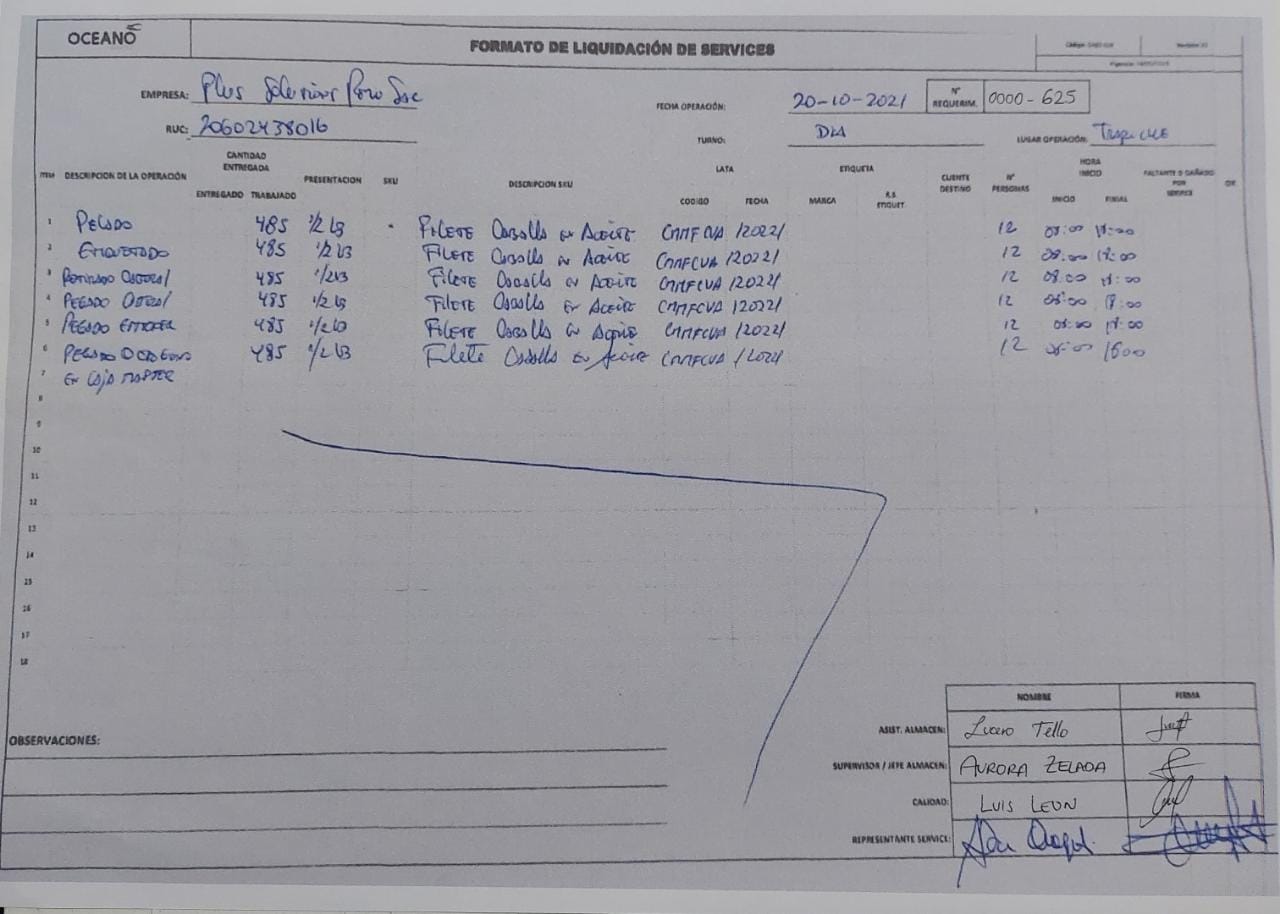 OCEANO
FORMATO DE LIQUIDACIÓN DE SERVICES
EMPRESA: Plus
FECHA OPERACIÓN: 20-10-2021
N° REQUERIM. 0000-625
RUC: 20602438016
TURNO: DIA
LUGAR OPERACIÓN:
ITEM DESCRIPCION DE LA OPERACIÓN CANTIDAD ENTREGADA PRESENTACION SKU DESCRIPCION SKU LATA ETIQUETA CLIENTE DESTINO N° PERSONAS HORA INICIO FALTANTE O DAÑADO POR SERVICE
ENTREGADO TRABAJADO CODIGO FECHA MARCA R.S. ETIQUET. INICIO FINAL
1 PEGADO 485 1/2 LB FILETE Caballa en Aceite 12 08:00 18:00
2 ETIQUETADO 485 1/2 LB FILETE Caballa en Aceite 12 08:00 18:00
3 485 1/2 LB FILETE Caballa en Aceite 12 08:00 18:00
4 PEGADO 485 1/2 LB FILETE Caballa en Aceite 12 08:00 18:00
5 PEGADO 485 1/2 LB FILETE Caballa en Aceite 12 08:00 18:00
6 PEGADO 485 1/2 LB Filete Caballa en Aceite 12 08:00
7 EN CAJA MASTER
8
9
10
11
12
13
14
15
16
17
18
NOMBRE FIRMA
OBSERVACIONES:
ASIST. ALMACEN: Lucero Tello
SUPERVISOR / JEFE ALMACEN: AURORA ZELADA
CALIDAD: LUIS LEON
REPRESENTANTE SERVICE: